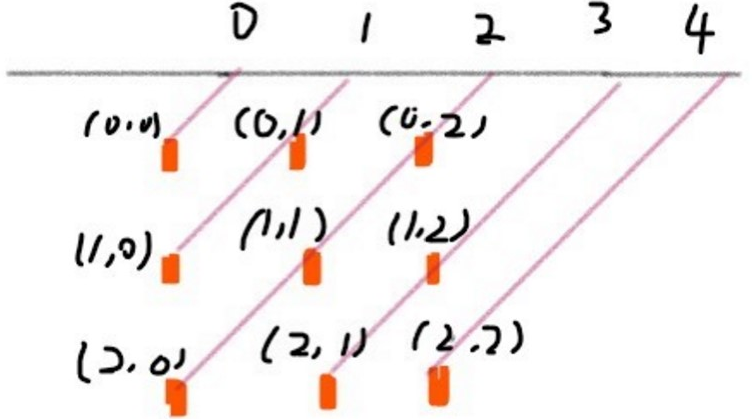 0 1 2 3 4
(0.0) (0,1) (0.2)
(1,0) (1,1) (1.2)
(2.0) (2,1) (2.2)